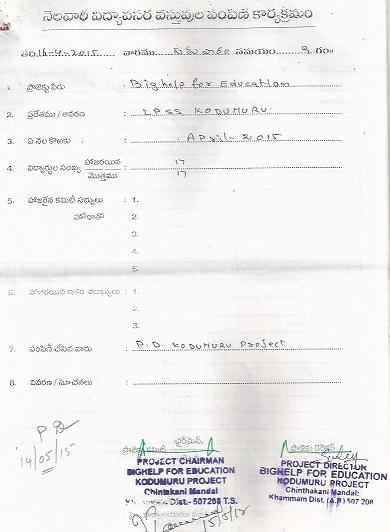 నెలవారీ విద్యావసర వస్తువుల పంపిణీ కార్యక్రమం
తేది. 16-4-2015 వారము సమయం 9 గం॥
1. ప్రాజెక్టు పేరు : Bighelp for Education
2. ప్రదేశము / ఆవరణ : LPSS KODUMURU
3. ఏ నెల కొఱకు : April-2015
4. విద్యార్థుల సంఖ్య హాజరయిన 17
మొత్తము 17
5. హాజరైన కమిటీ సభ్యులు : 1.
హోదాతో 2.
3.
4.
5.
6. హాజరయిన ఇతర ముఖ్యులు : 1.
2.
3.
7. పంపిణీ చేసిన వారు : P.D. KODUMURU Project
8. వివరణ / సూచనలు :
P D
14/05/15
ఛైర్మెన్,
PROJECT CHAIRMAN
BIGHELP FOR EDUCATION
KODUMURU PROJECT
Chintakani Mandal
Dist.- 507208 T.S.
PROJECT DIRECTOR
BIGHELP FOR EDUCATION
KODUMURU PROJECT
Chinthakani Mandal:
Khammam Dist. (A.P) 507 208